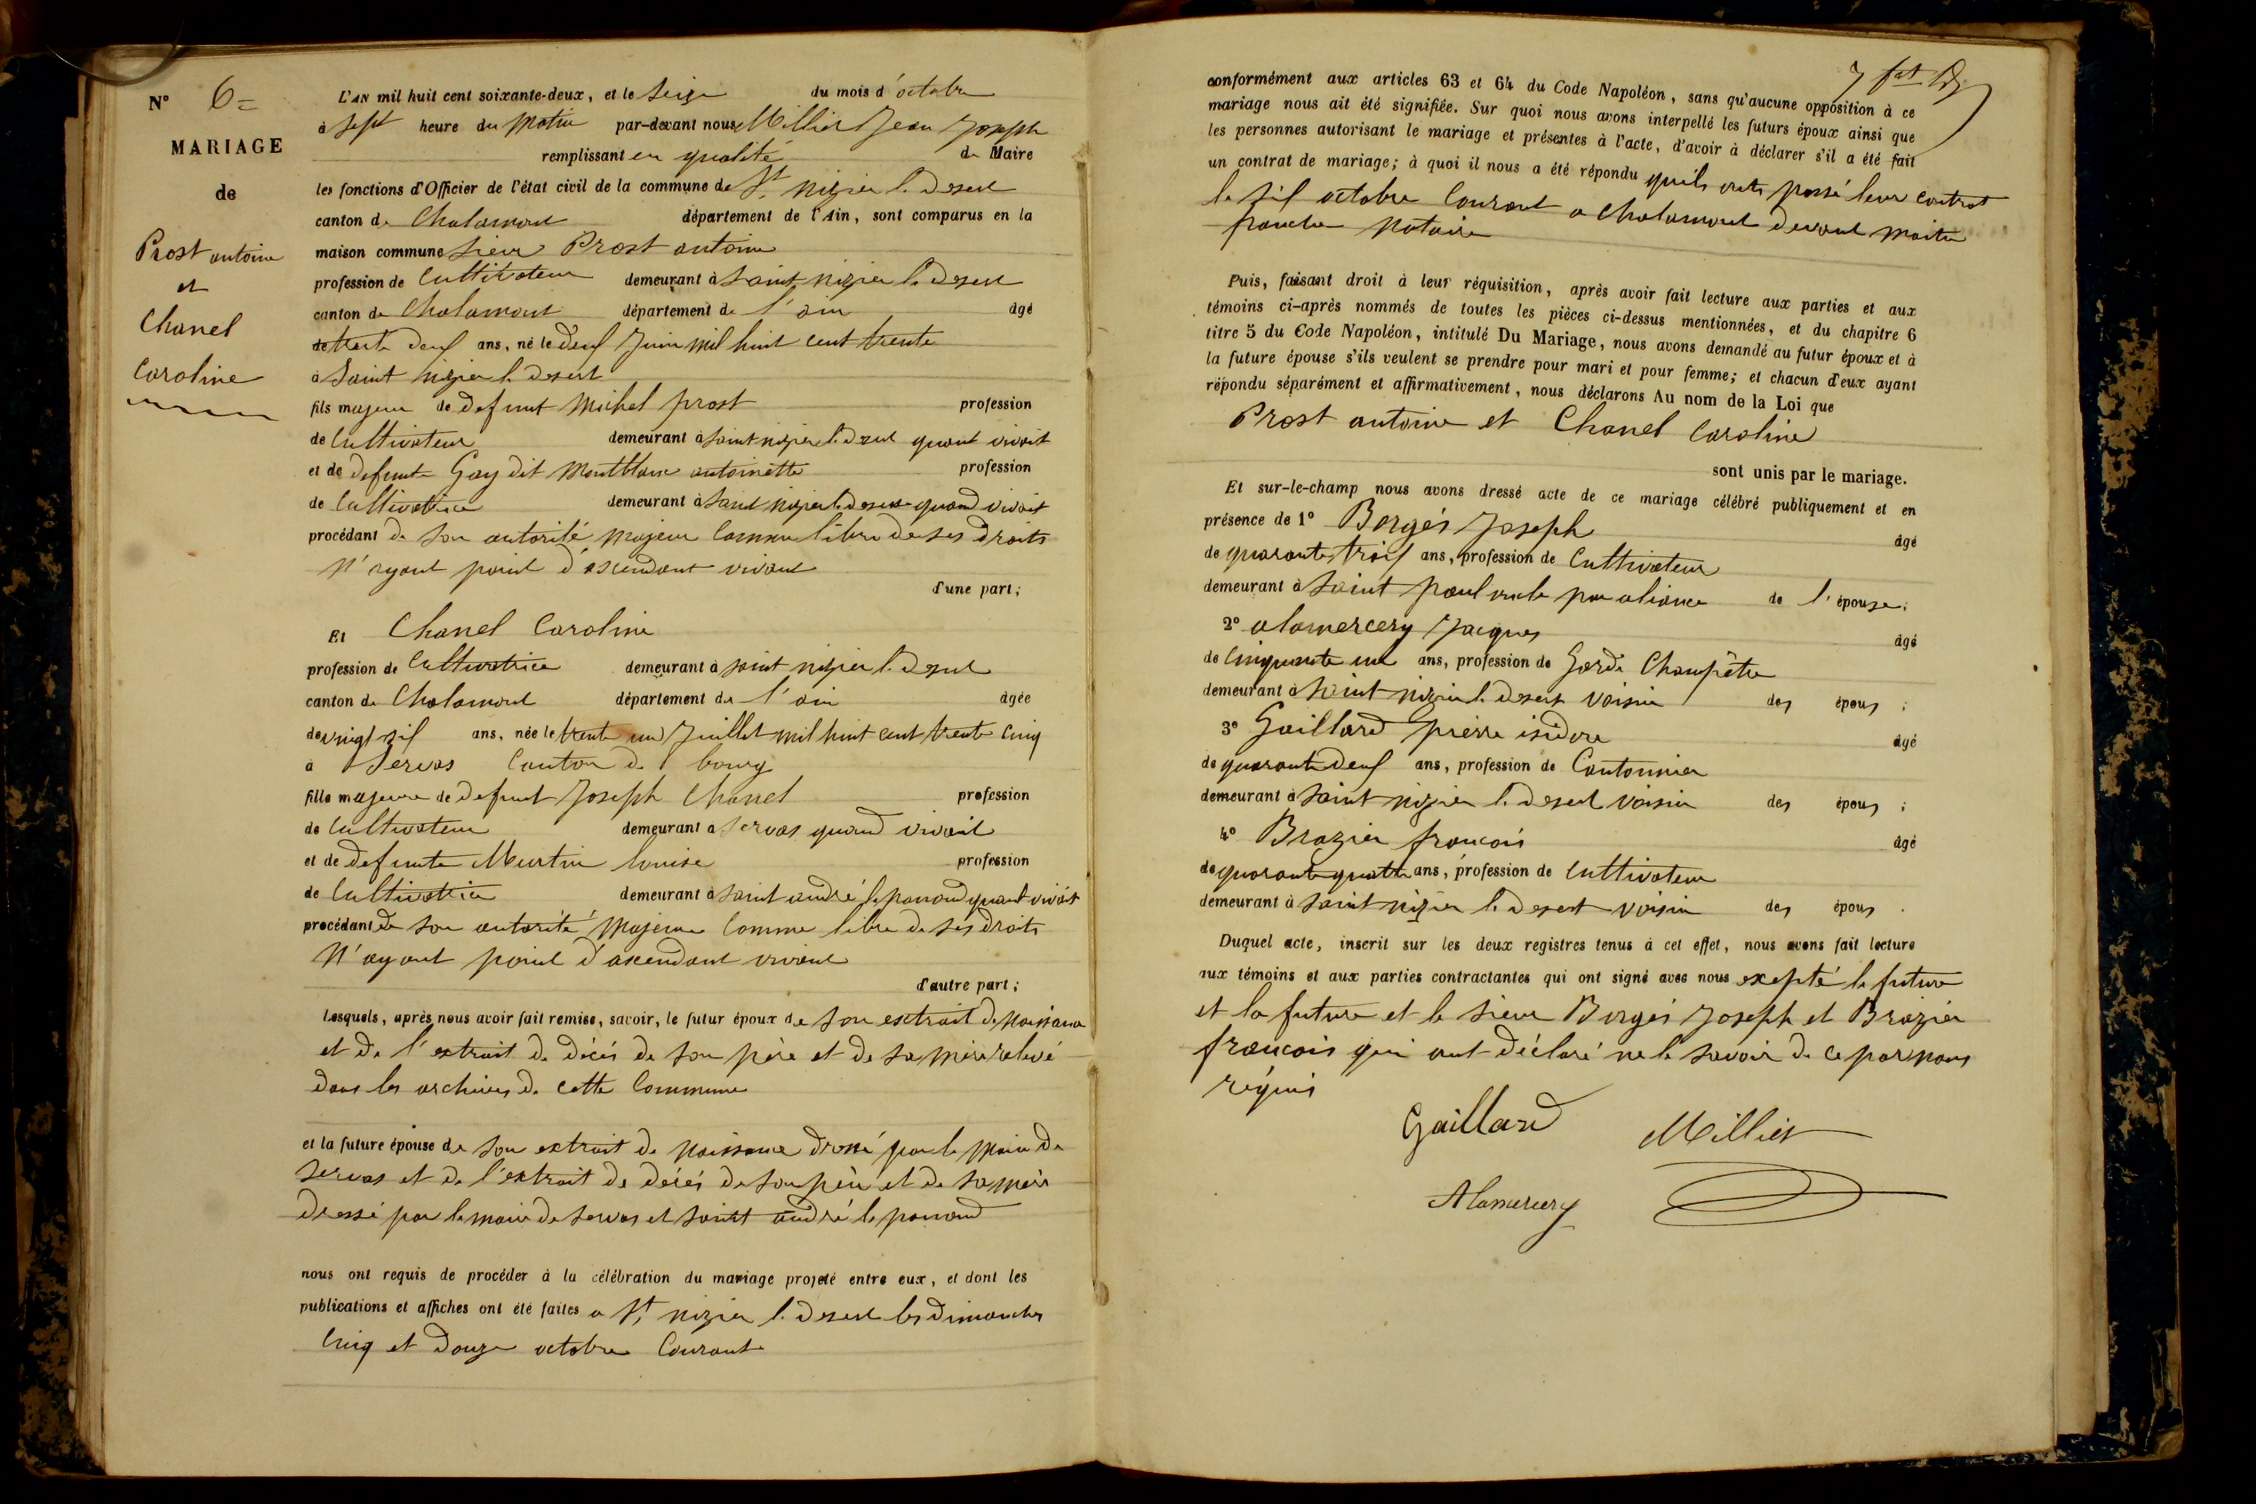 N° 6=
MARIAGE
de
Prost antoine
et
Chanel
Caroline
L'AN mil huit cent soixante-deux, et le Seize du mois d'octobre
à Sept heure du Matin par-devant nous Milliet Jean Joseph
remplissant en qualité de Maire
les fonctions d'Officier de l'état civil de la commune de St nizier le desert
canton de Chalamont département de l'Ain, sont comparus en la
maison commune Sieur Prost antoine
profession de Cultivateur demeurant à Saint nizier le desert
canton de Chalamont département de l'ain âgé
de trente deux ans, né le deux Juin mil huit cent trente
à Saint nizier le desert
fils majeur de defunt Michel prost profession
de Cultivateur demeurant à Saint nizier le desert quant vivait
et de defunte Gay dit Montblanc antoinette profession
de Cultivatrice demeurant à Saint nizier le desert quand vivait
procédant de son autorité majeur Comme libre de ses droits
N'ayant point d'ascendant vivant
d'une part;
Et Chanel Caroline
profession de Cultivatrice demeurant à Saint nizier le desert
canton de Chalamont département de l'ain âgée
de vingt six ans, née le trente un Juillet mil huit cent trente Cinq
à Servas Canton de bourg
fille majeure de defunt Joseph Chanel profession
de Cultivateur demeurant à Servas quand vivait
et de defunte Murtin louise profession
de Cultivatrice demeurant à Saint andré le panoud quant vivait
procédant de son autorité Majeure Comme libre de ses droits
N'ayant point d'ascendant vivant
d'autre part;
Lesquels, après nous avoir fait remise, savoir, le futur époux de son extrait de Naissance
et de l'extrait de décés de son père et de sa mère relevé
dans les archives de cette Commune
et la future épouse de son extrait de Naissance dressé par le Maire de
Servas et de l'extrait de décés de son père et de sa mère
dressé par le maire de Servas et Saint andré le panoud
nous ont requis de procéder à la célébration du mariage projeté entre eux, et dont les
publications et affiches ont été faites a St nizier le desert les dimanches
Cinq et douze octobre Courant
7
conformément aux articles 63 et 64 du Code Napoléon, sans qu'aucune opposition à ce
mariage nous ait été signifiée. Sur quoi nous avons interpellé les futurs époux ainsi que
les personnes autorisant le mariage et présentes à l'acte, d'avoir à déclarer s'il a été fait
un contrat de mariage; à quoi il nous a été répondu quils onts passé leur contrat
le six octobre Courant a Chalamont devant maitre
Notaire
Puis, faisant droit à leur réquisition, après avoir fait lecture aux parties et aux
témoins ci-après nommés de toutes les pièces ci-dessus mentionnées, et du chapitre 6
titre 5 du Code Napoléon, intitulé Du Mariage, nous avons demandé au futur époux et à
la future épouse s'ils veulent se prendre pour mari et pour femme; et chacun d'eux ayant
répondu séparément et affirmativement, nous déclarons Au nom de la Loi que
Prost antoine et Chanel Caroline
sont unis par le mariage.
Et sur-le-champ nous avons dressé acte de ce mariage célébré publiquement et en
présence de 1° Borgés Joseph âgé
de quarante trois ans, profession de Cultivateur
demeurant à Saint paul oncle par aliance de l'épouse;
2° alamercery Jacques âgé
de Cinquante un ans, profession de Garde Champêtre
demeurant à Saint nizier le desert voisin des époux;
3° Gaillard pierre isidore âgé
de quarante deux ans, profession de Cantonnier
demeurant à Saint nizier le desert voisin des époux;
4° Brazier francois âgé
de quarante quatre ans, profession de Cultivateur
demeurant à Saint nizier le desert voisin des époux.
Duquel acte, inscrit sur les deux registres tenus à cet effet, nous avons fait lecture
aux témoins et aux parties contractantes qui ont signé avec nous exepté le future
et la future et le sieur Borgés Joseph et Brazier
francois qui ont déclaré ne le savoir de ce par nous
réquis
Gaillard Milliet
Alamercery